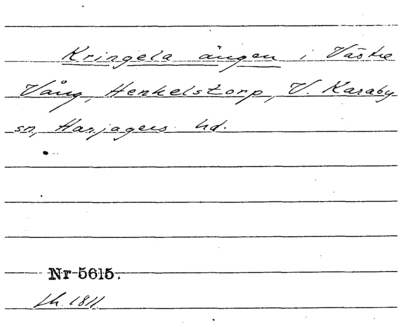 Kringela ängen i Västra
Vång, Henkelstorp, V. Karaby
sn, Harjagers hd.
Nr 5615.
Lh. 1811